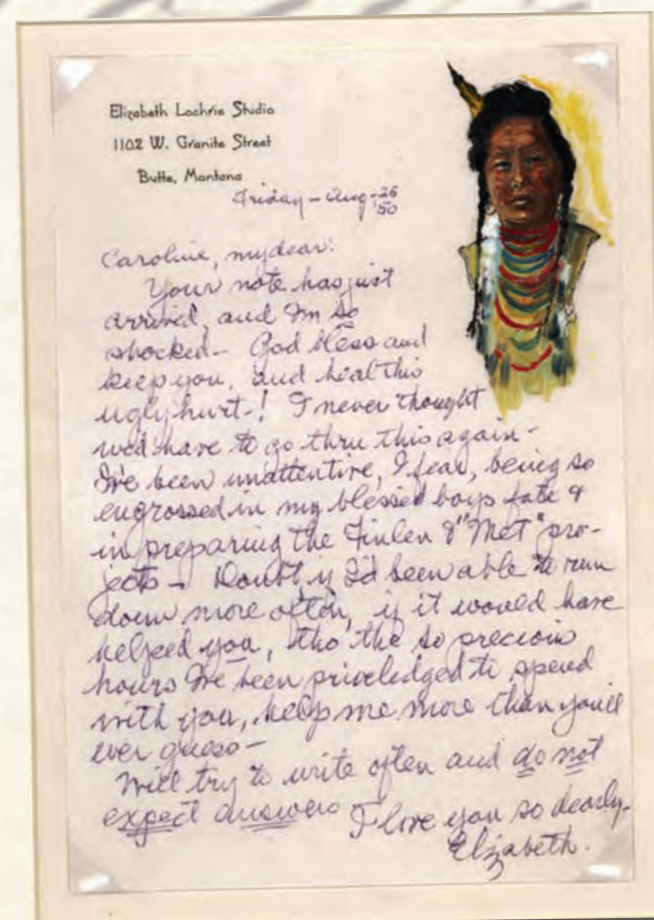 Elizabeth Lochrie Studio
1102 W. Granite Street
Butte, Montana
Friday - Aug - 25
'50
Caroline, my dear:
Your note has just
arrived, and I'm so
shocked - God bless and
keep you, and heal this
ugly hurt-! I never thought
we'd have to go thru this again -
I've been unattentive, I fear, being so
engrossed in my blessed boys fate &
in preparing the Finlen & "Met" pro-
jects - Doubt if I'd been able to run
down more often, if it would have
helped you, tho' the so precious
hours I've been priveledged to spend
with you, help me more than you'll
ever guess -
Will try to write often and do not
expect answers I love you so dearly -
Elizabeth.